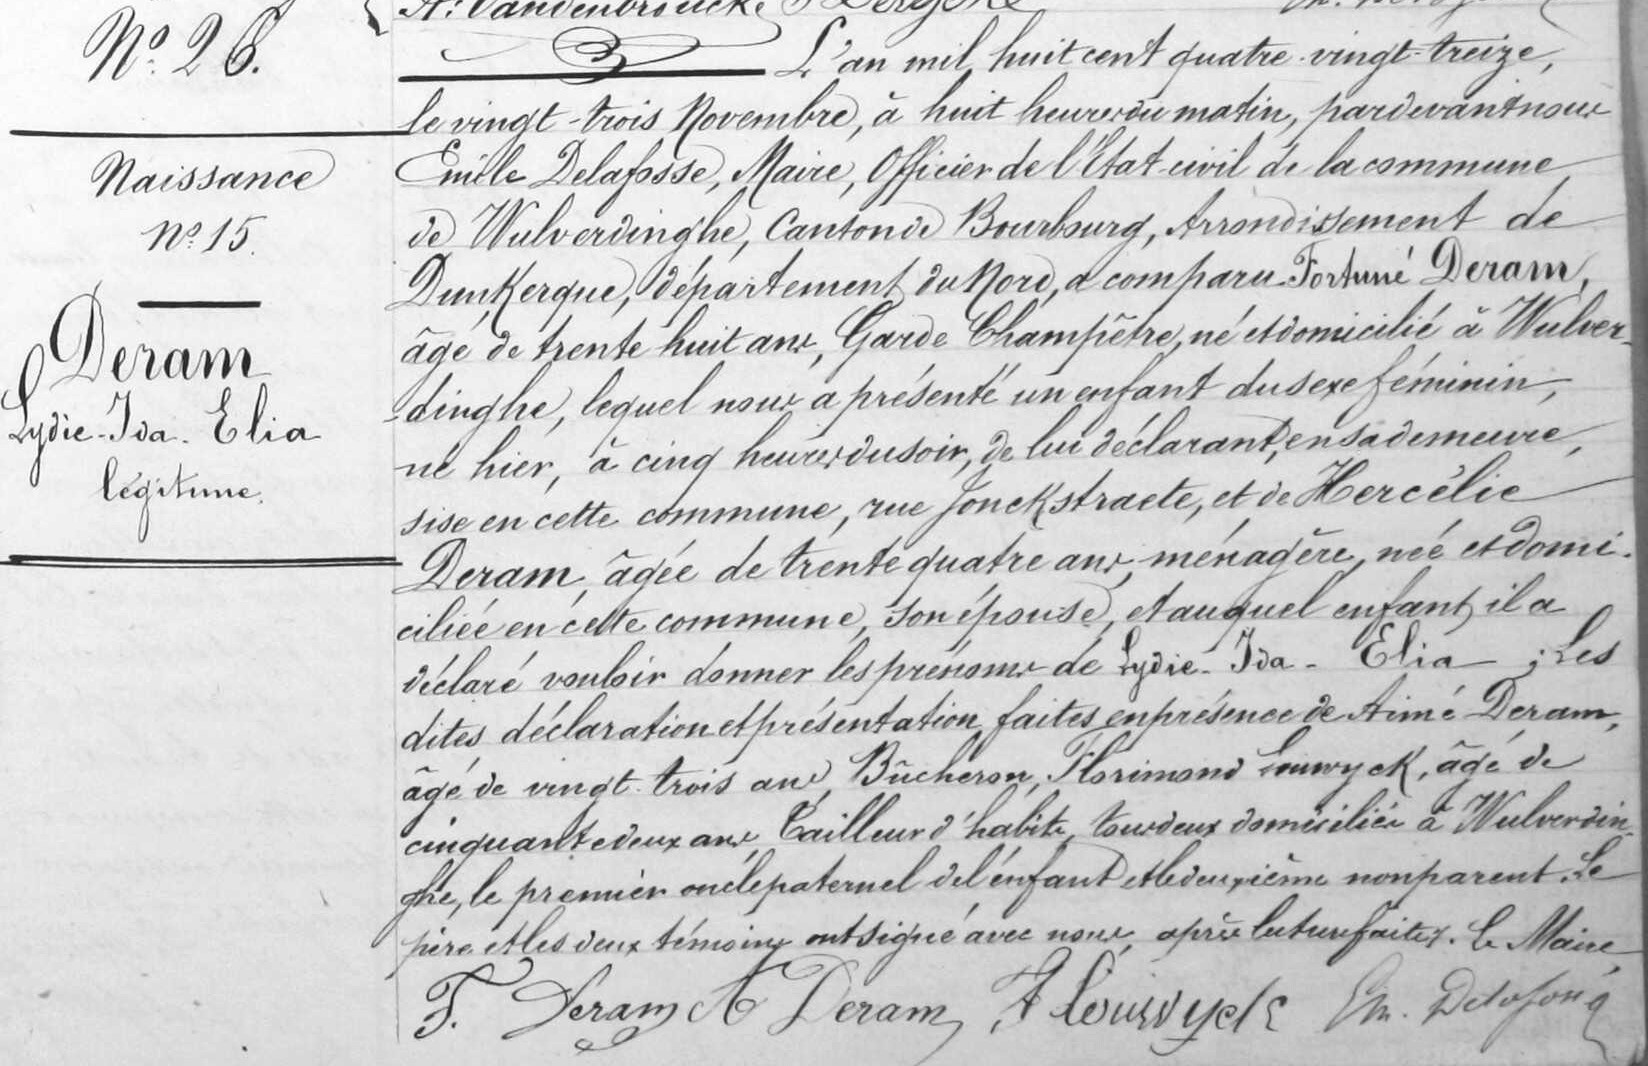 A. Vandenbroucke
N° 26.
Naissance
N° 15.
Deram
Lydie-Ida-Elia
légitime.
L'an mil huit cent quatre-vingt-treize,
le vingt-trois Novembre, à huit heures du matin, pardevant nous
Emile Delafosse, Maire, Officier de l'Etat-civil de la commune
de Wulverdinghe, Canton de Bourbourg, Arrondissement de
Dunkerque, département du Nord, a comparu Fortuné Deram,
âgé de trente huit ans, Garde Champêtre, né et domicilié à Wulver-
dinghe, lequel nous a présenté un enfant du sexe féminin,
né hier, à cinq heures du soir, de lui déclarant, en sa demeure,
sise en cette commune, rue Jonckstraete, et de Hercélie
Deram, âgée de trente quatre ans, ménagère, née et domi-
ciliée en cette commune, son épouse, et auquel enfant il a
déclaré vouloir donner les prénoms de Lydie-Ida-Elia ; Les
dites déclaration et présentation faites en présence de Aimé Deram,
âgé de vingt-trois ans, Bûcheron, Florimond Louwyck, âgé de
cinquante deux ans, Tailleur d'habits, tous deux domiciliés à Wulverdin-
ghe, le premier oncle paternel de l'enfant et le deuxième non parent. Le
père et les deux témoins ont signé avec nous, après lecture faite. Le Maire,
F. Deram A Deram F Louwyck Em. Delafosse